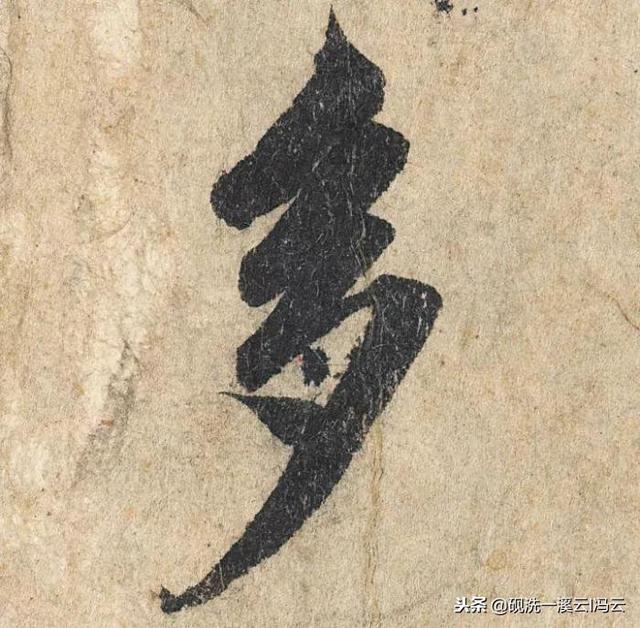 多
头条 @砚洗一溪云I冯云